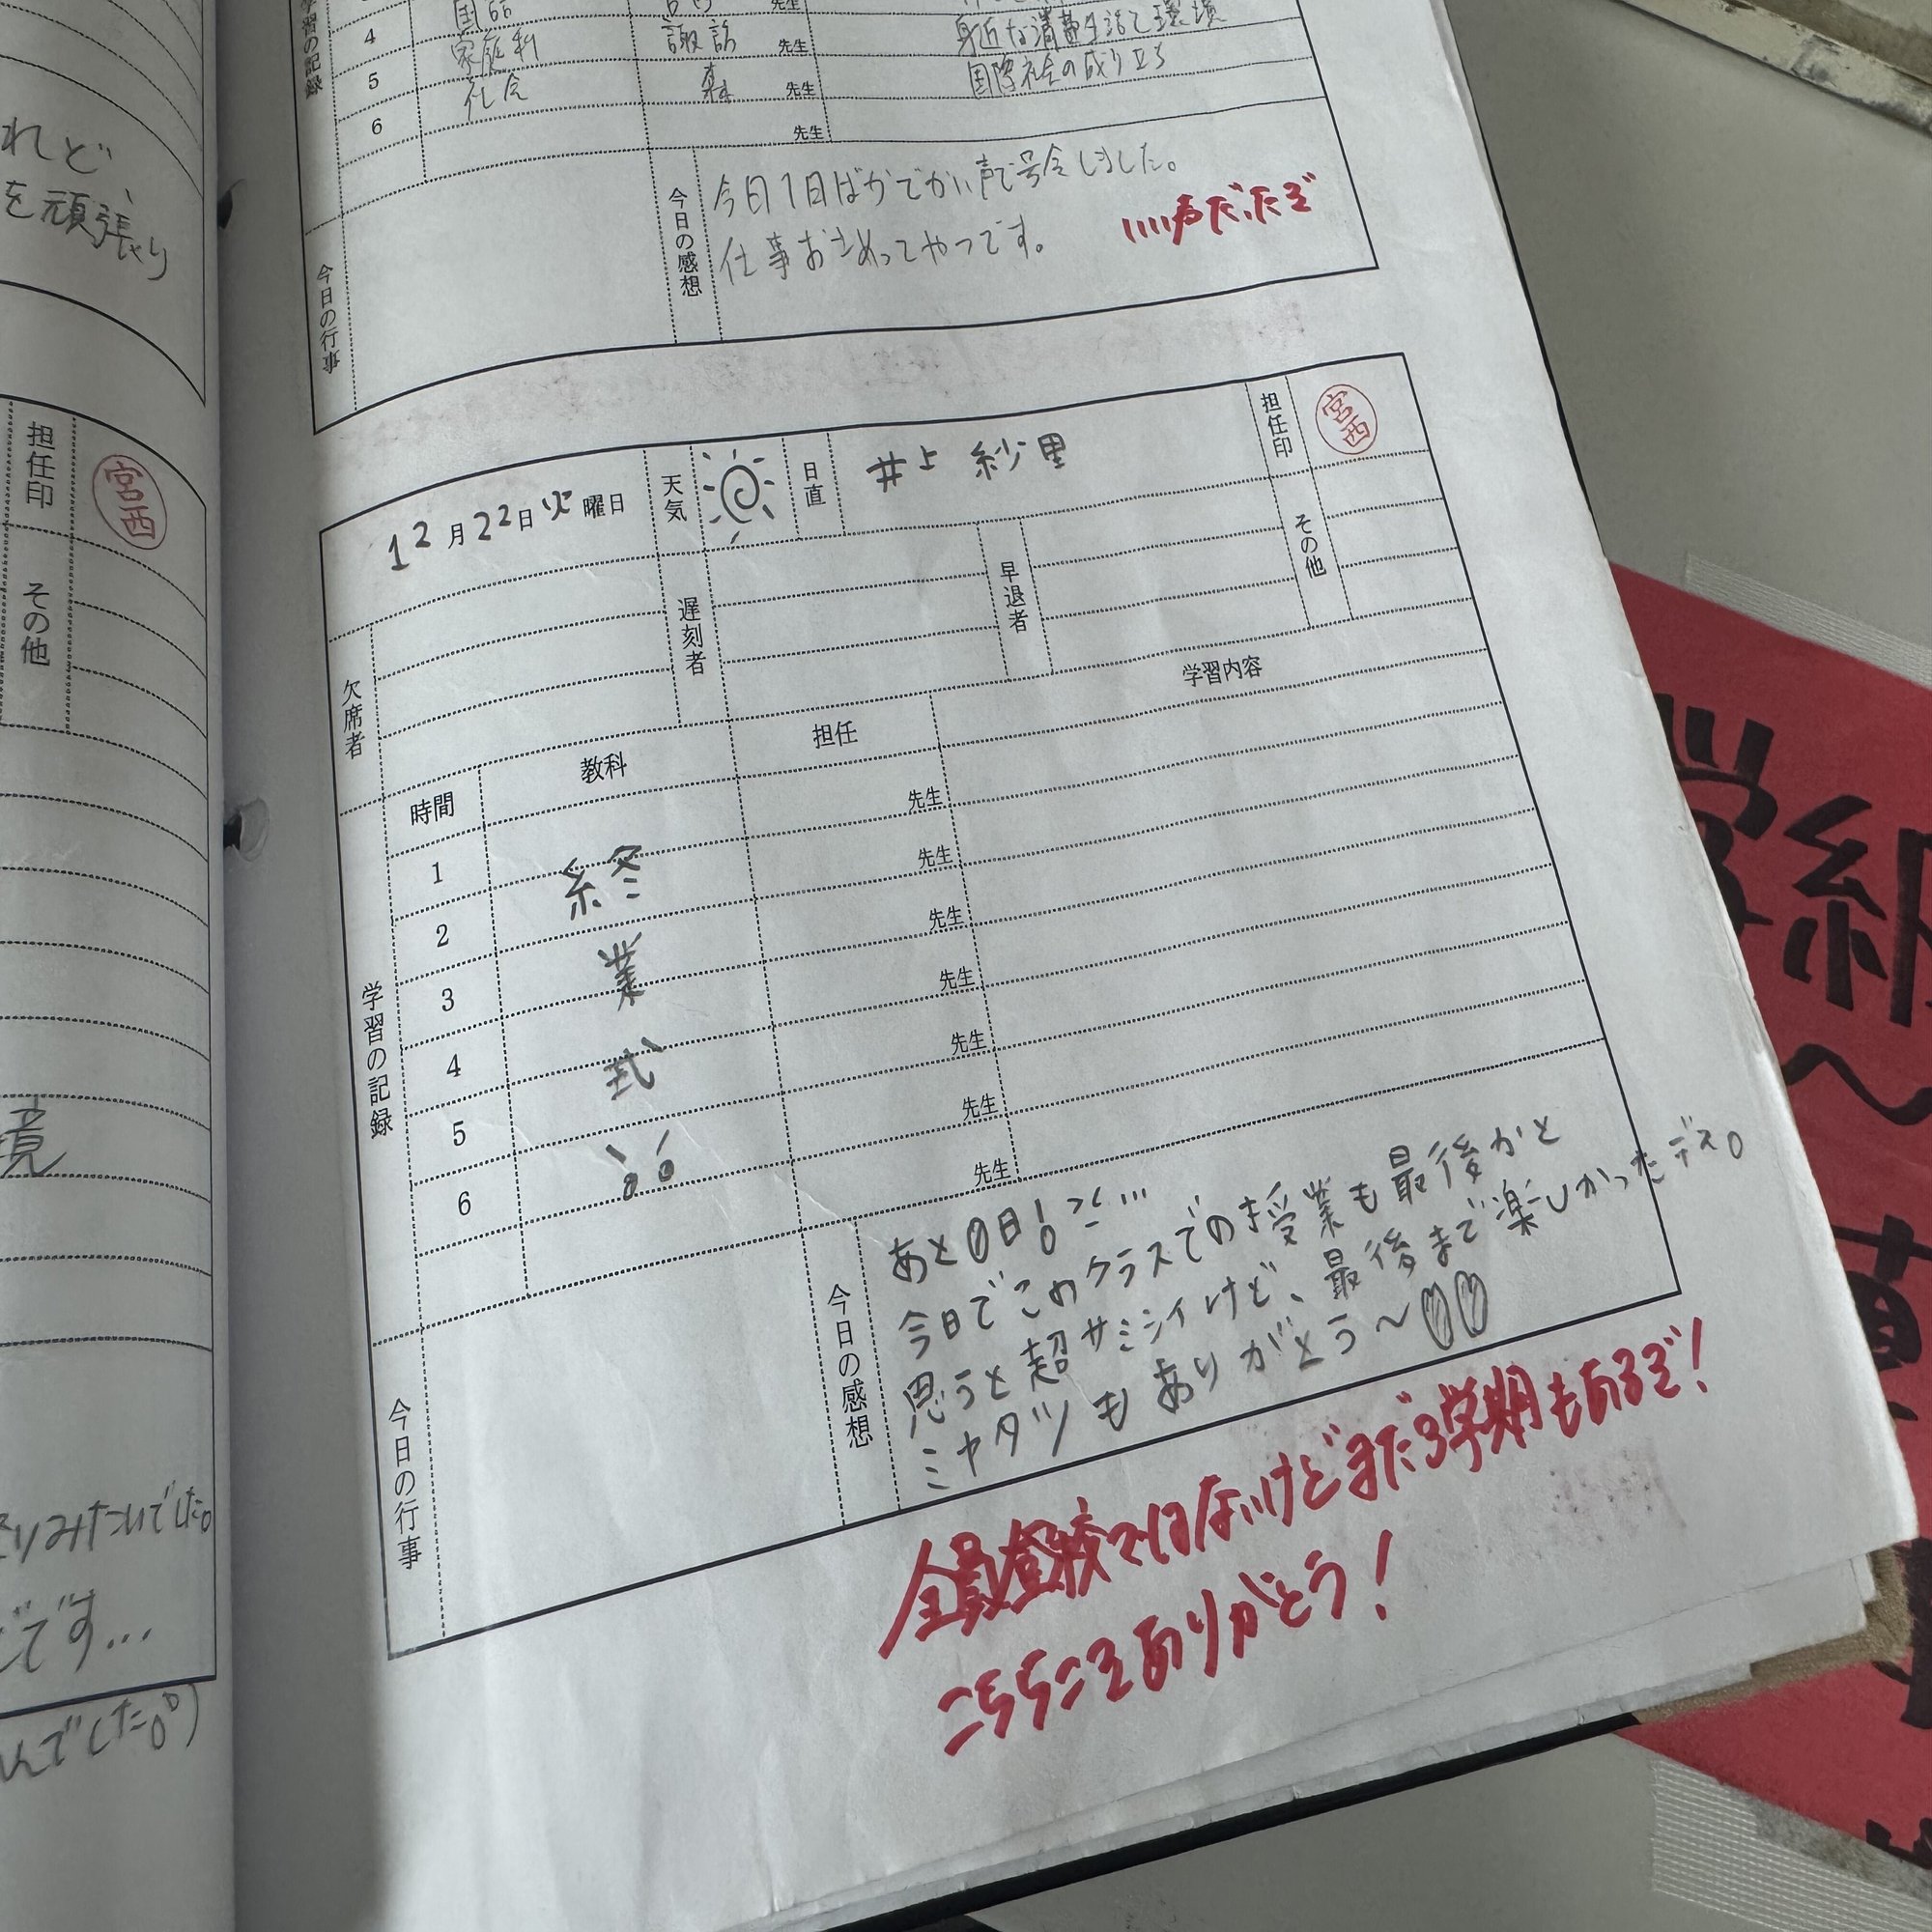 れど、
を頑張り
担任印
宮西
その他
境
みたいでした。
です…
んでした。)
学習の記録
4 家庭科 諏訪 先生 身近な消費生活と環境
5 社会 森 先生 国際社会の成り立ち
6 先生
今日の行事
今日の感想
今日1日ばかでかい声で号令しました。
仕事おさめってやつです。
いい声だったぞ
12月22日火曜日 天気 日直 井上 紗里 担任印 宮西
欠席者 遅刻者 早退者 その他
学習の記録
時間 教科 担任 学習内容
先生
1 終 先生
2 先生
3 業 先生
4 式 先生
5 先生
6 !! 先生
今日の行事
今日の感想
あと0日!
今日でこのクラスでの授業も最後かと
思うと超サミシイけど、最後まで楽しかったデス。
ミヤタツもありがとう〜
全員登校ではないけどまだ3学期もあるぞ!
こちらこそありがとう!
学級
〜